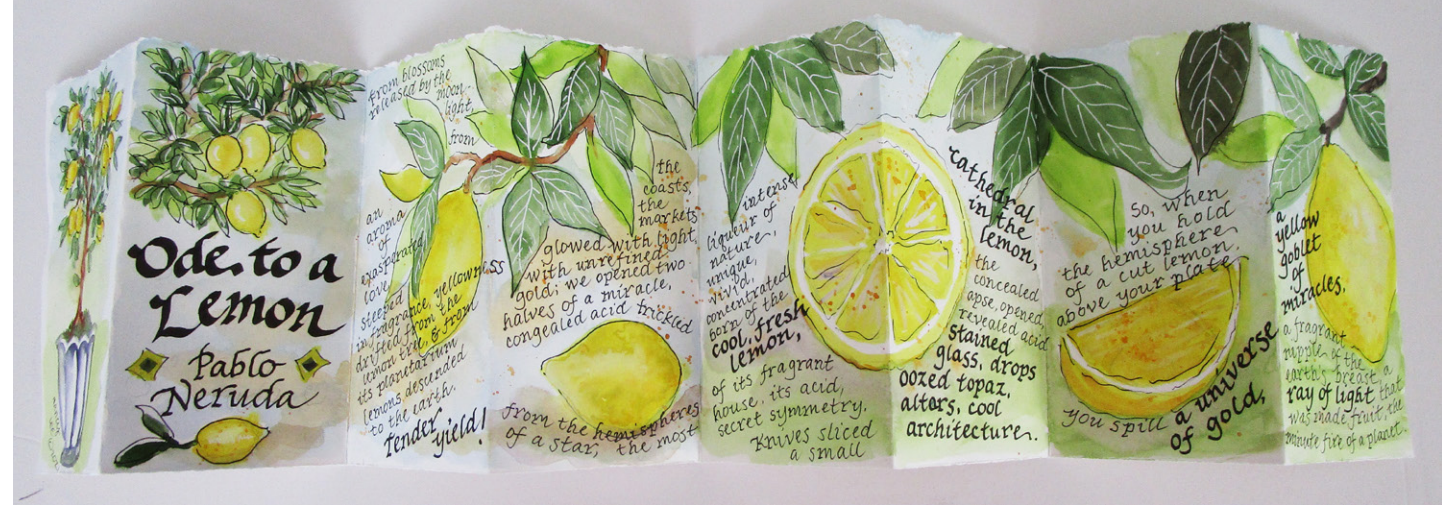 Ode to a
Lemon
Pablo
Neruda
from blossoms
released by the
moon-
light,
from
an
aroma
of
exasperated
love,
steeped
in fragrance, yellowness
drifted from the
lemon tree, & from
its planetarium
lemons descended
to the earth.
Tender
yield!
the
coasts,
the
markets
glowed with light,
with unrefined
gold; we opened two
halves of a miracle,
congealed acid trickled
from the hemispheres
of a star; the most
intense
liqueur of
nature,
unique,
vivid,
concentrated
born of the
cool, fresh
lemon,
of its fragrant
house, its acid,
secret symmetry.
Knives sliced
a small
cathedral
in the
lemon,
the
concealed
apse, opened,
revealed acid
stained
glass, drops
oozed topaz,
altars, cool
architecture.
So, when
you hold
the hemisphere
of a cut lemon
above your plate
you spill
a universe
of gold,
a
yellow
goblet
of
miracles,
a fragrant
nipple of the
earth's breast a
ray of light that
was made fruit, the
minute fire of a planet.